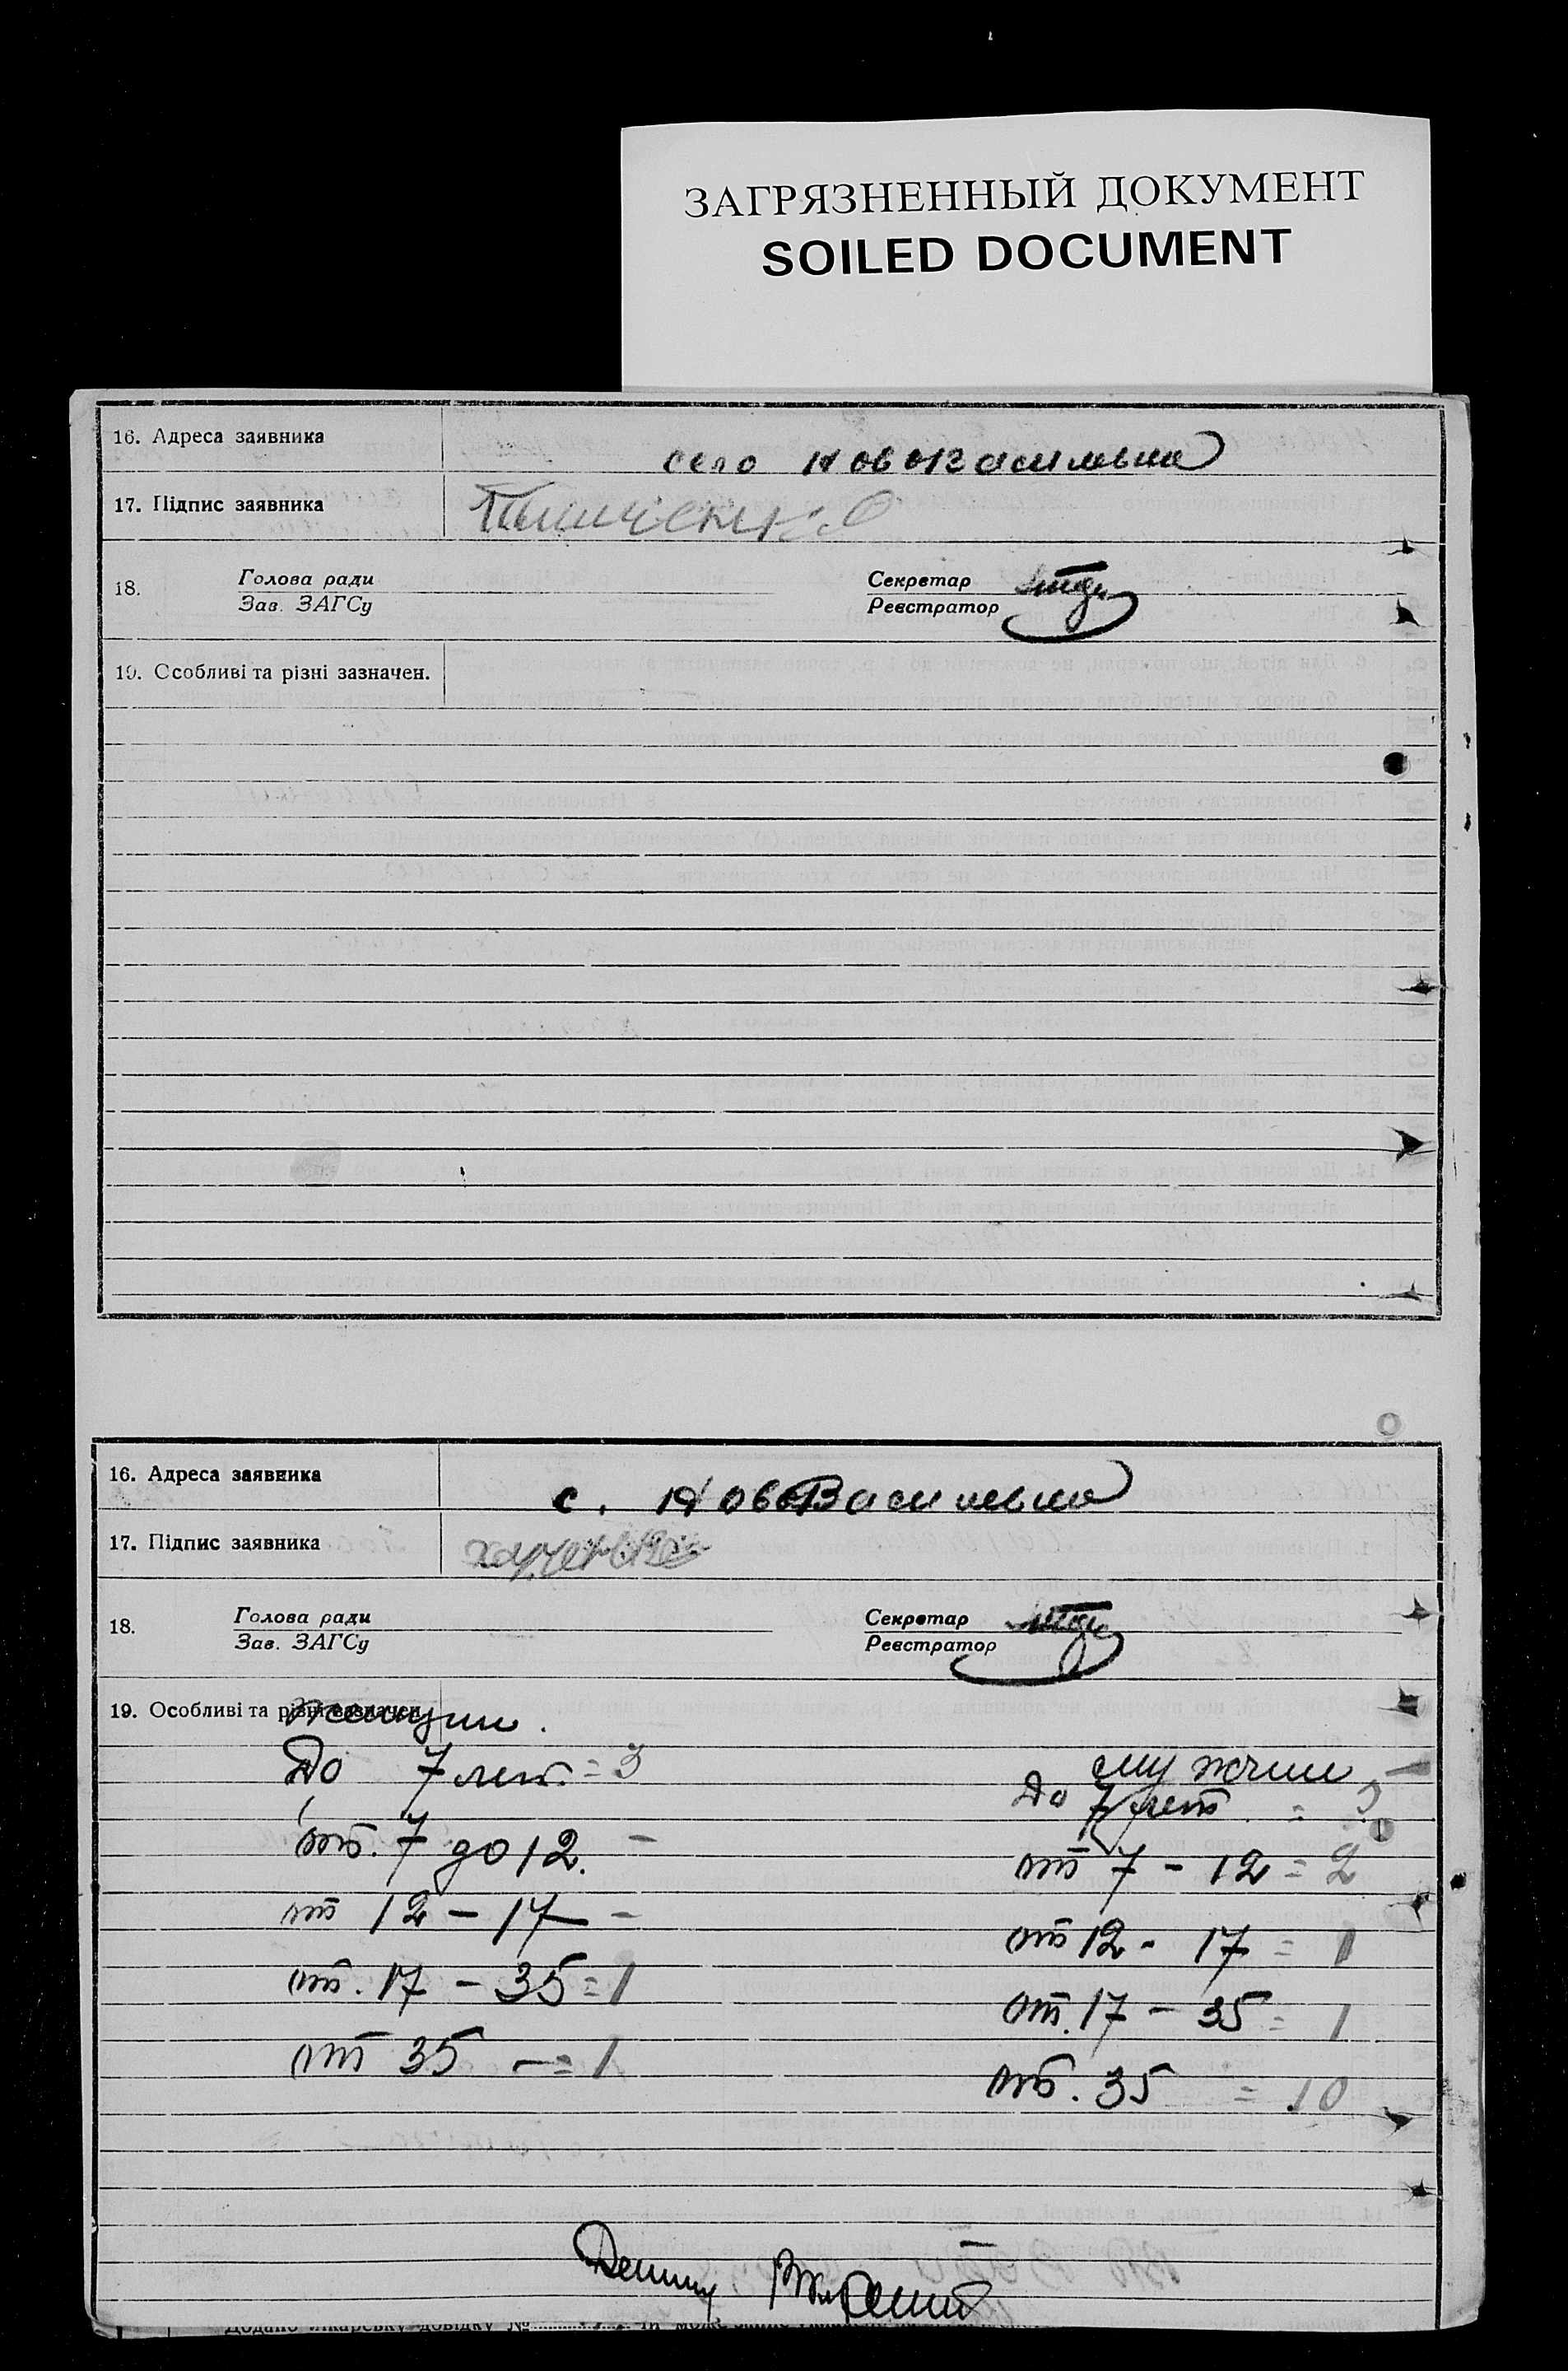 ЗАГРЯЗНЕННЫЙ ДОКУМЕНТ
SOILED DOCUMENT
16. Адреса заявника
село НовоВасильевка
17. Підпис заявника
18. Голова ради Секретар
Зав. ЗАГСу Реєстратор
19. Особливі та різні зазначен.
16. Адреса заявника
с. НовоВасильевка
17. Підпис заявника
18. Голова ради Секретар
Зав. ЗАГСу Реєстратор
19. Особливі та різні зазначен.
женщин.
До 7 лет = 3
от. 7 до 12. -
от 12 - 17 -
от. 17 - 35 = 1
от 35 - = 1
мужчин
До 7 лет =
от 7 - 12 = 2
от 12 - 17 = 1
от. 17 - 35 = 1
от. 35 = 10
Додано лікарську довідку №